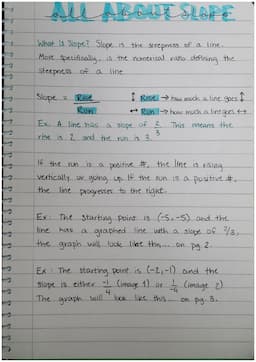 ALL ABOUT SLOPE
What is Slope? Slope is the steepness of a line.
More specifically, is the numerical ratio defining the
steepness of a line
Slope = Rise ↕ Rise → how much a line goes ↕
Run ↔ Run → how much a line goes ↔
Ex: A line has a slope of 2/3. This means the
rise is 2 and the run is 3.
If the run is a positive #, the line is rising
vertically, or going up. If the run is a positive #,
the line progresses to the right.
Ex: The starting point is (-5,-5) and the
line has a graphed line with a slope of 2/3,
the graph will look like this... on pg 2.
Ex: The starting point is (-2,-1) and the
slope is either -1/4 (image 1) or 1/-4 (image 2)
The graph will look like this... on pg. 3.